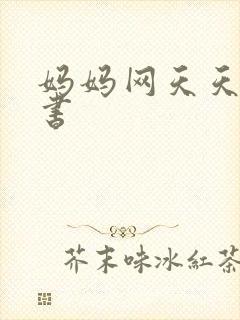 妈妈网天天
书
芥末味冰紅茶